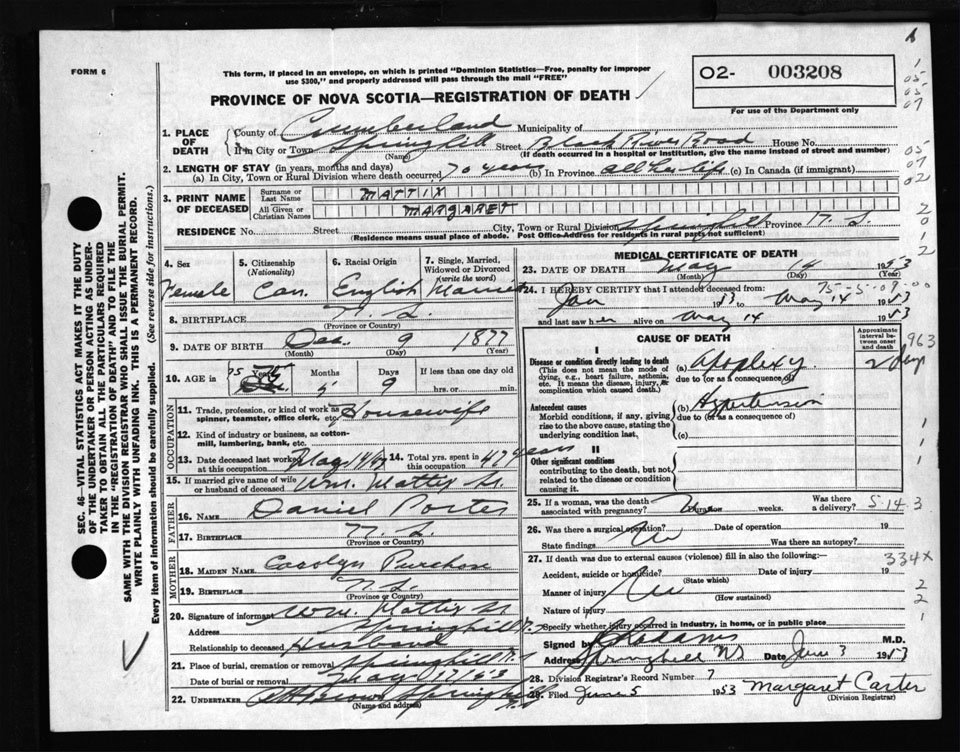 FORM 6
This form, if placed in an envelope, on which is printed "Dominion Statistics—Free, penalty for improper
use $300," and properly addressed will pass through the mail "FREE"
PROVINCE OF NOVA SCOTIA—REGISTRATION OF DEATH
02- 003208
For use of the Department only
1. PLACE OF DEATH
County of Cumberland Municipality of
If in City or Town Springhill Street Black River Road House No.
(Name) (If death occurred in a hospital or institution, give the name instead of street and number)
2. LENGTH OF STAY (in years, months and days)
(a) In City, Town or Rural Division where death occurred 70 years (b) In Province all her life (c) In Canada (if immigrant)
3. PRINT NAME OF DECEASED
Surname or Last Name MATTIX
All Given or Christian Names MARGARET
RESIDENCE No. Street City, Town or Rural Division Springhill Province N. S.
(Residence means usual place of abode. Post Office Address for residents in rural parts not sufficient)
4. Sex Female
5. Citizenship (Nationality) Can.
6. Racial Origin English
7. Single, Married, Widowed or Divorced (write the word) Married
8. BIRTHPLACE N. S.
(Province or Country)
9. DATE OF BIRTH Dec. 9 1877
(Month) (Day) (Year)
10. AGE in 75 Years Months 5 Days 9 If less than one day old
hrs. or min.
OCCUPATION
11. Trade, profession, or kind of work as spinner, teamster, office clerk, etc. Housewife
12. Kind of industry or business, as cotton-mill, lumbering, bank, etc.
13. Date deceased last worked at this occupation May 14/53 14. Total yrs. spent in this occupation 47 years
15. If married give name of wife or husband of deceased Wm. Mattix Sr.
FATHER
16. NAME Daniel Porter
17. BIRTHPLACE N. S.
(Province or Country)
MOTHER
18. MAIDEN NAME Carolyn
19. BIRTHPLACE N. S.
(Province or Country)
20. Signature of informant Wm. Mattix Sr
Address Springhill N. S
Relationship to deceased Husband
21. Place of burial, cremation or removal Springhill N. S.
Date of burial or removal May 17/53
22. UNDERTAKER Brown Springhill N.S.
(Name and address)
MEDICAL CERTIFICATE OF DEATH
23. DATE OF DEATH May 14 1953
(Month) (Day) (Year)
75-5-09-00
24. I HEREBY CERTIFY that I attended deceased from:
Jan 1953 to May 14 1953
and last saw her alive on May 14 1953
CAUSE OF DEATH
Approximate interval between onset and death
I
Disease or condition directly leading to death
(This does not mean the mode of dying, e.g., heart failure, asthenia, etc. It means the disease, injury, or complication which caused death.)
(a) Apoplexy 2 days
due to (or as a consequence of)
Antecedent causes
Morbid conditions, if any, giving rise to the above cause, stating the underlying condition last.
(b) Hypertension
due to (or as a consequence of)
(c)
II
Other significant conditions
contributing to the death, but not related to the disease or condition causing it.
25. If a woman, was the death associated with pregnancy? No Duration weeks. Was there a delivery?
26. Was there a surgical operation? No Date of operation 19
State findings Was there an autopsy?
27. If death was due to external causes (violence) fill in also the following:
Accident, suicide or homicide? Date of injury 19
(State which)
Manner of injury No
(How sustained)
Nature of injury
Specify whether injury occurred in industry, in home, or in public place
Signed by Adams M.D.
Address Springhill NS Date June 3 1953
28. Division Registrar's Record Number 7
29. Filed June 5 1953 Margaret Carter
(Division Registrar)
SEC. 46—VITAL STATISTICS ACT MAKES IT THE DUTY
OF THE UNDERTAKER OR PERSON ACTING AS UNDER-
TAKER TO OBTAIN ALL THE PARTICULARS REQUIRED
IN THE "REGISTRATION OF DEATH" AND TO FILE THE
SAME WITH THE DIVISION REGISTRAR WHO SHALL ISSUE THE BURIAL PERMIT.
WRITE PLAINLY WITH UNFADING INK. THIS IS A PERMANENT RECORD.
Every item of information should be carefully supplied. (See reverse side for instructions.)
1
05
05
07
05
07
02
2
0
1
2
963
1
1
5-14-3
334x
2
2
1